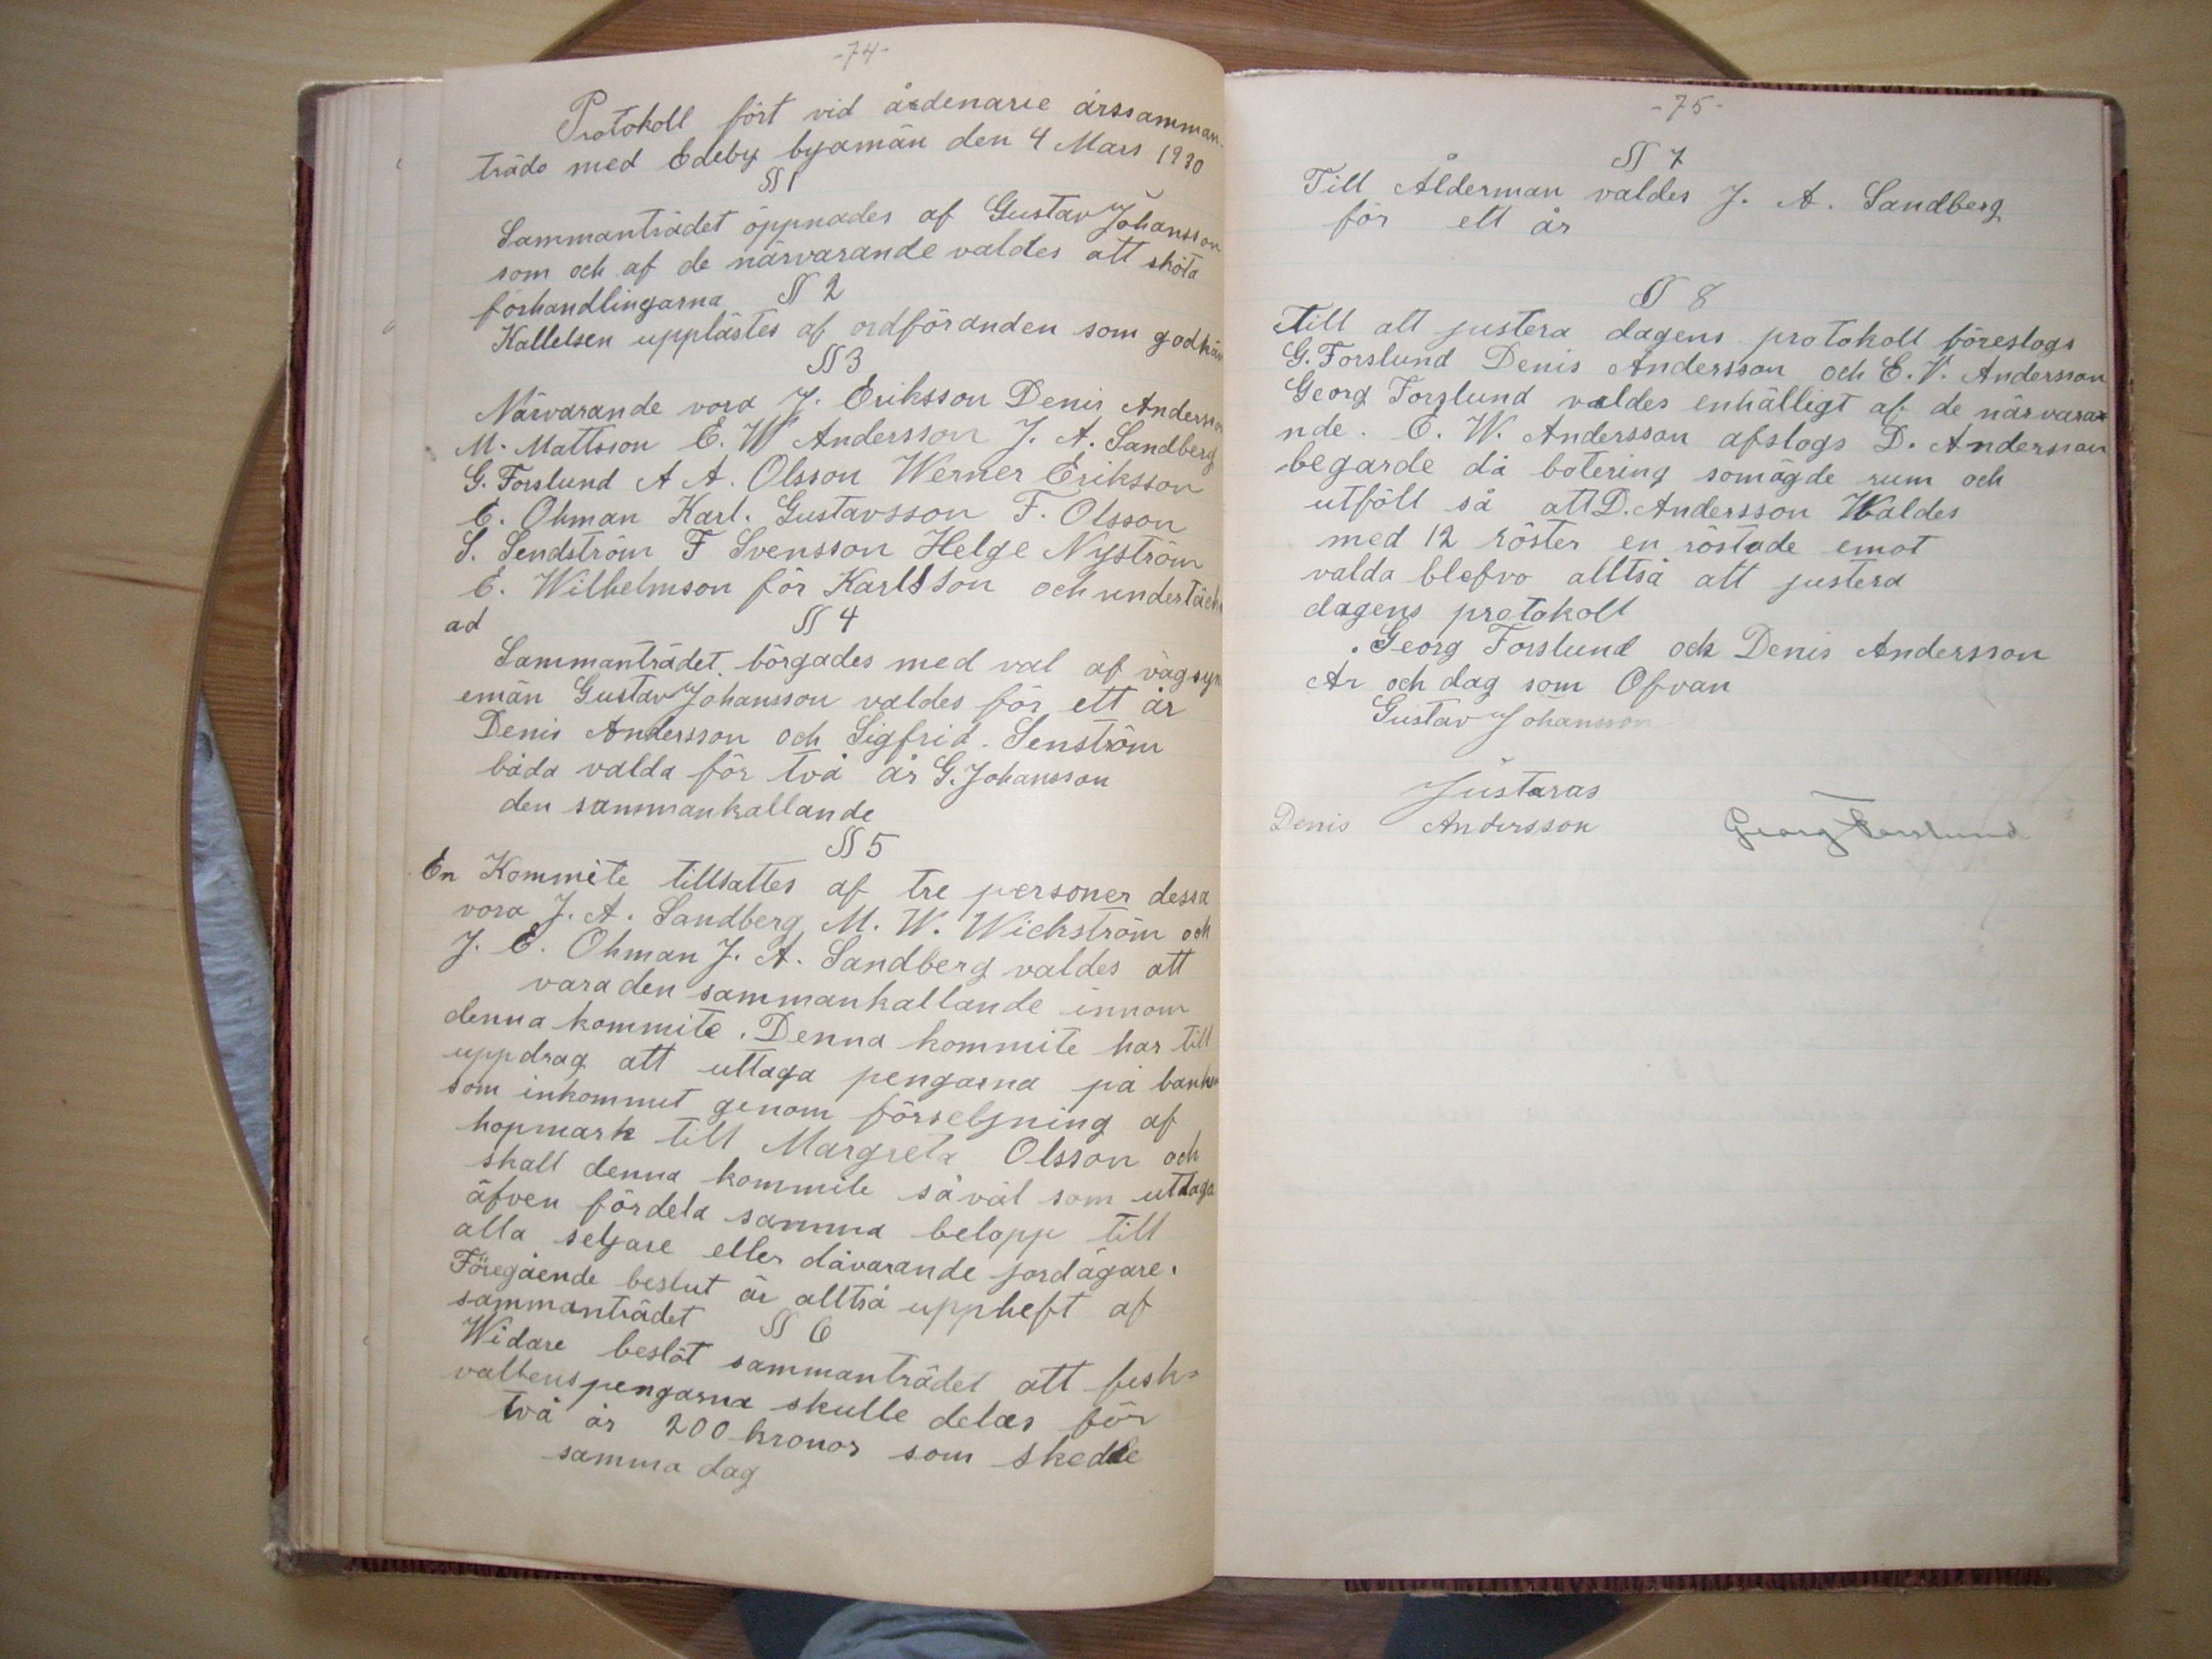 -74-
Protokoll fört vid årdenarie årssamman-
träde med Edeby byamän den 4 Mars 1930
§§ 1
Sammanträdet öppnades af Gustav Johansson
som och af de närvarande valdes att sköta
förhandlingarna §§ 2
Kallelsen upplästes af ordföranden som godkän
§§ 3
Närvarande vora J. Eriksson Denis Andersson
M. Mattsson E. W Andersson J. A. Sandberg
G. Forslund A A. Olsson Werner Eriksson
E. Öhman Karl. Gustavsson F. Olsson
S. Sendström F Svensson Helge Nyström
E. Wilhelmson för Karlsson och undertäckn
ad §§ 4
Sammanträdet börgades med val af vägsyn
emän Gustav Johansson valdes för ett år
Denis Andersson och Sigfrid. Senström
båda valda för två år G. Johansson
den sammankallande
§§ 5
En Kommite tillsattes af tre personer dessa
vora J. A. Sandberg M. W. Wickström och
J. E. Öhman J. A. Sandberg valdes att
vara den sammankallande innom
denna kommite. Denna kommite har till
uppdrag att uttaga pengarna på banken
som inkommet genom förseljning af
hopmark till Margreta Olsson och
skall denna kommite såväl som uttaga
äfven fördela samma belopp till
alla seljare eller dåvarande jordägare.
Föregående beslut är alltså uppheft af
sammanträdet §§ 6
Widare beslöt sammanträdet att fisk-
vattenspengarna skulle delas för
två år 200 kronor som skedde
samma dag
-75-
§§ 7
Till Ålderman valdes J. A. Sandberg
för ett år
§§ 8
Till att justera dagens protokoll föreslogs
G. Forslund Denis Andersson och E. V. Andersson
Georg Forslund valdes enhälligt af de närvara
nde. E. W. Andersson afslogs D. Andersson
begarde då botering somägde rum och
utföll så att D. Andersson Waldes
med 12 röster en röstade emot
valda blefvo alltså att justera
dagens protokoll
Georg Forslund och Denis Andersson
År och dag som Ofvan
Gustav Johansson
Justaras
Denis Andersson Georg Forslund